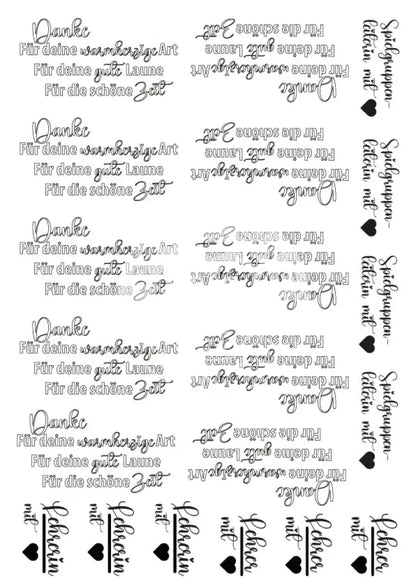 Danke
Für deine warmherzige Art
Für deine gute Laune
Für die schöne Zeit
Danke
Für deine warmherzige Art
Für deine gute Laune
Für die schöne Zeit
Danke
Für deine warmherzige Art
Für deine gute Laune
Für die schöne Zeit
Danke
Für deine warmherzige Art
Für deine gute Laune
Für die schöne Zeit
Danke
Für deine warmherzige Art
Für deine gute Laune
Für die schöne Zeit
Danke
Für deine warmherzige Art
Für deine gute Laune
Für die schöne Zeit
Danke
Für deine warmherzige Art
Für deine gute Laune
Für die schöne Zeit
Danke
Für deine warmherzige Art
Für deine gute Laune
Für die schöne Zeit
Danke
Für deine warmherzige Art
Für deine gute Laune
Für die schöne Zeit
Danke
Für deine warmherzige Art
Für deine gute Laune
Für die schöne Zeit
Spielgruppen-
leiterin mit
Spielgruppen-
leiterin mit
Spielgruppen-
leiterin mit
Spielgruppen-
leiterin mit
Lehrerin
mit
Lehrerin
mit
Lehrerin
mit
Lehrer
mit
Lehrer
mit
Lehrer
mit